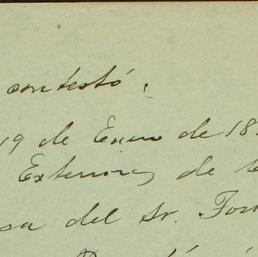 contestó.
19 de Enero de 18
Exteriores de
sa del Sr.